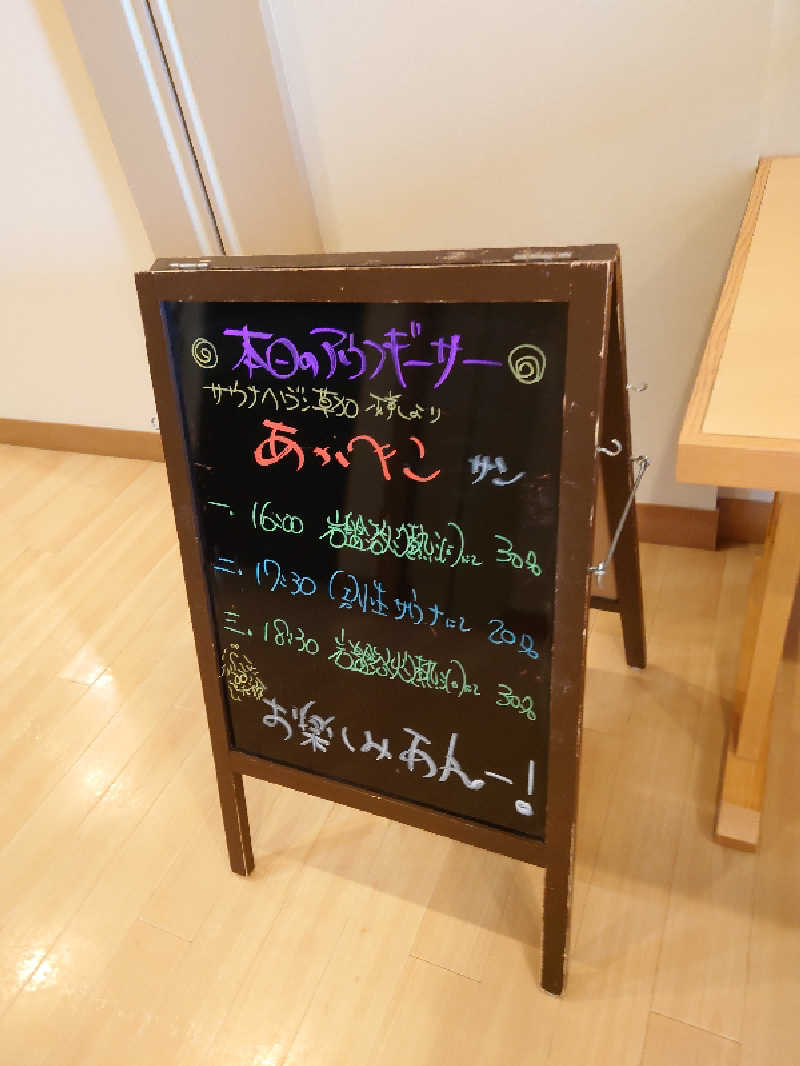 本日のアウフギーサー
サウナヘヴン草加 様より
あかべこ サン
一. 16:00 岩盤浴(熱波)にて 30名
二. 17:30 (男性サウナ)にて 20名
三. 18:30 岩盤浴(熱波)にて 30名
お楽しみあんー!